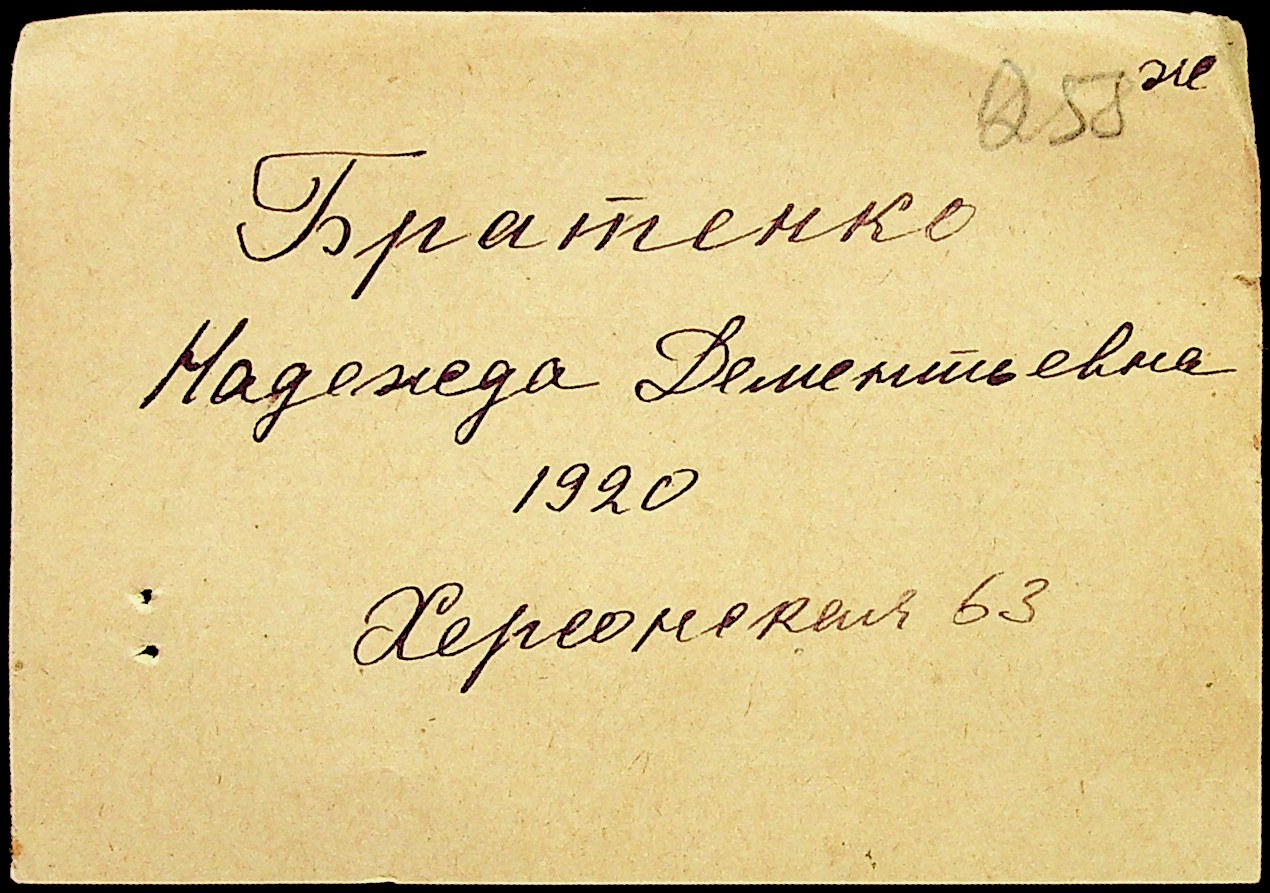 ж
Братенко
Надежда Дементьевна
1920
Херсонская 63